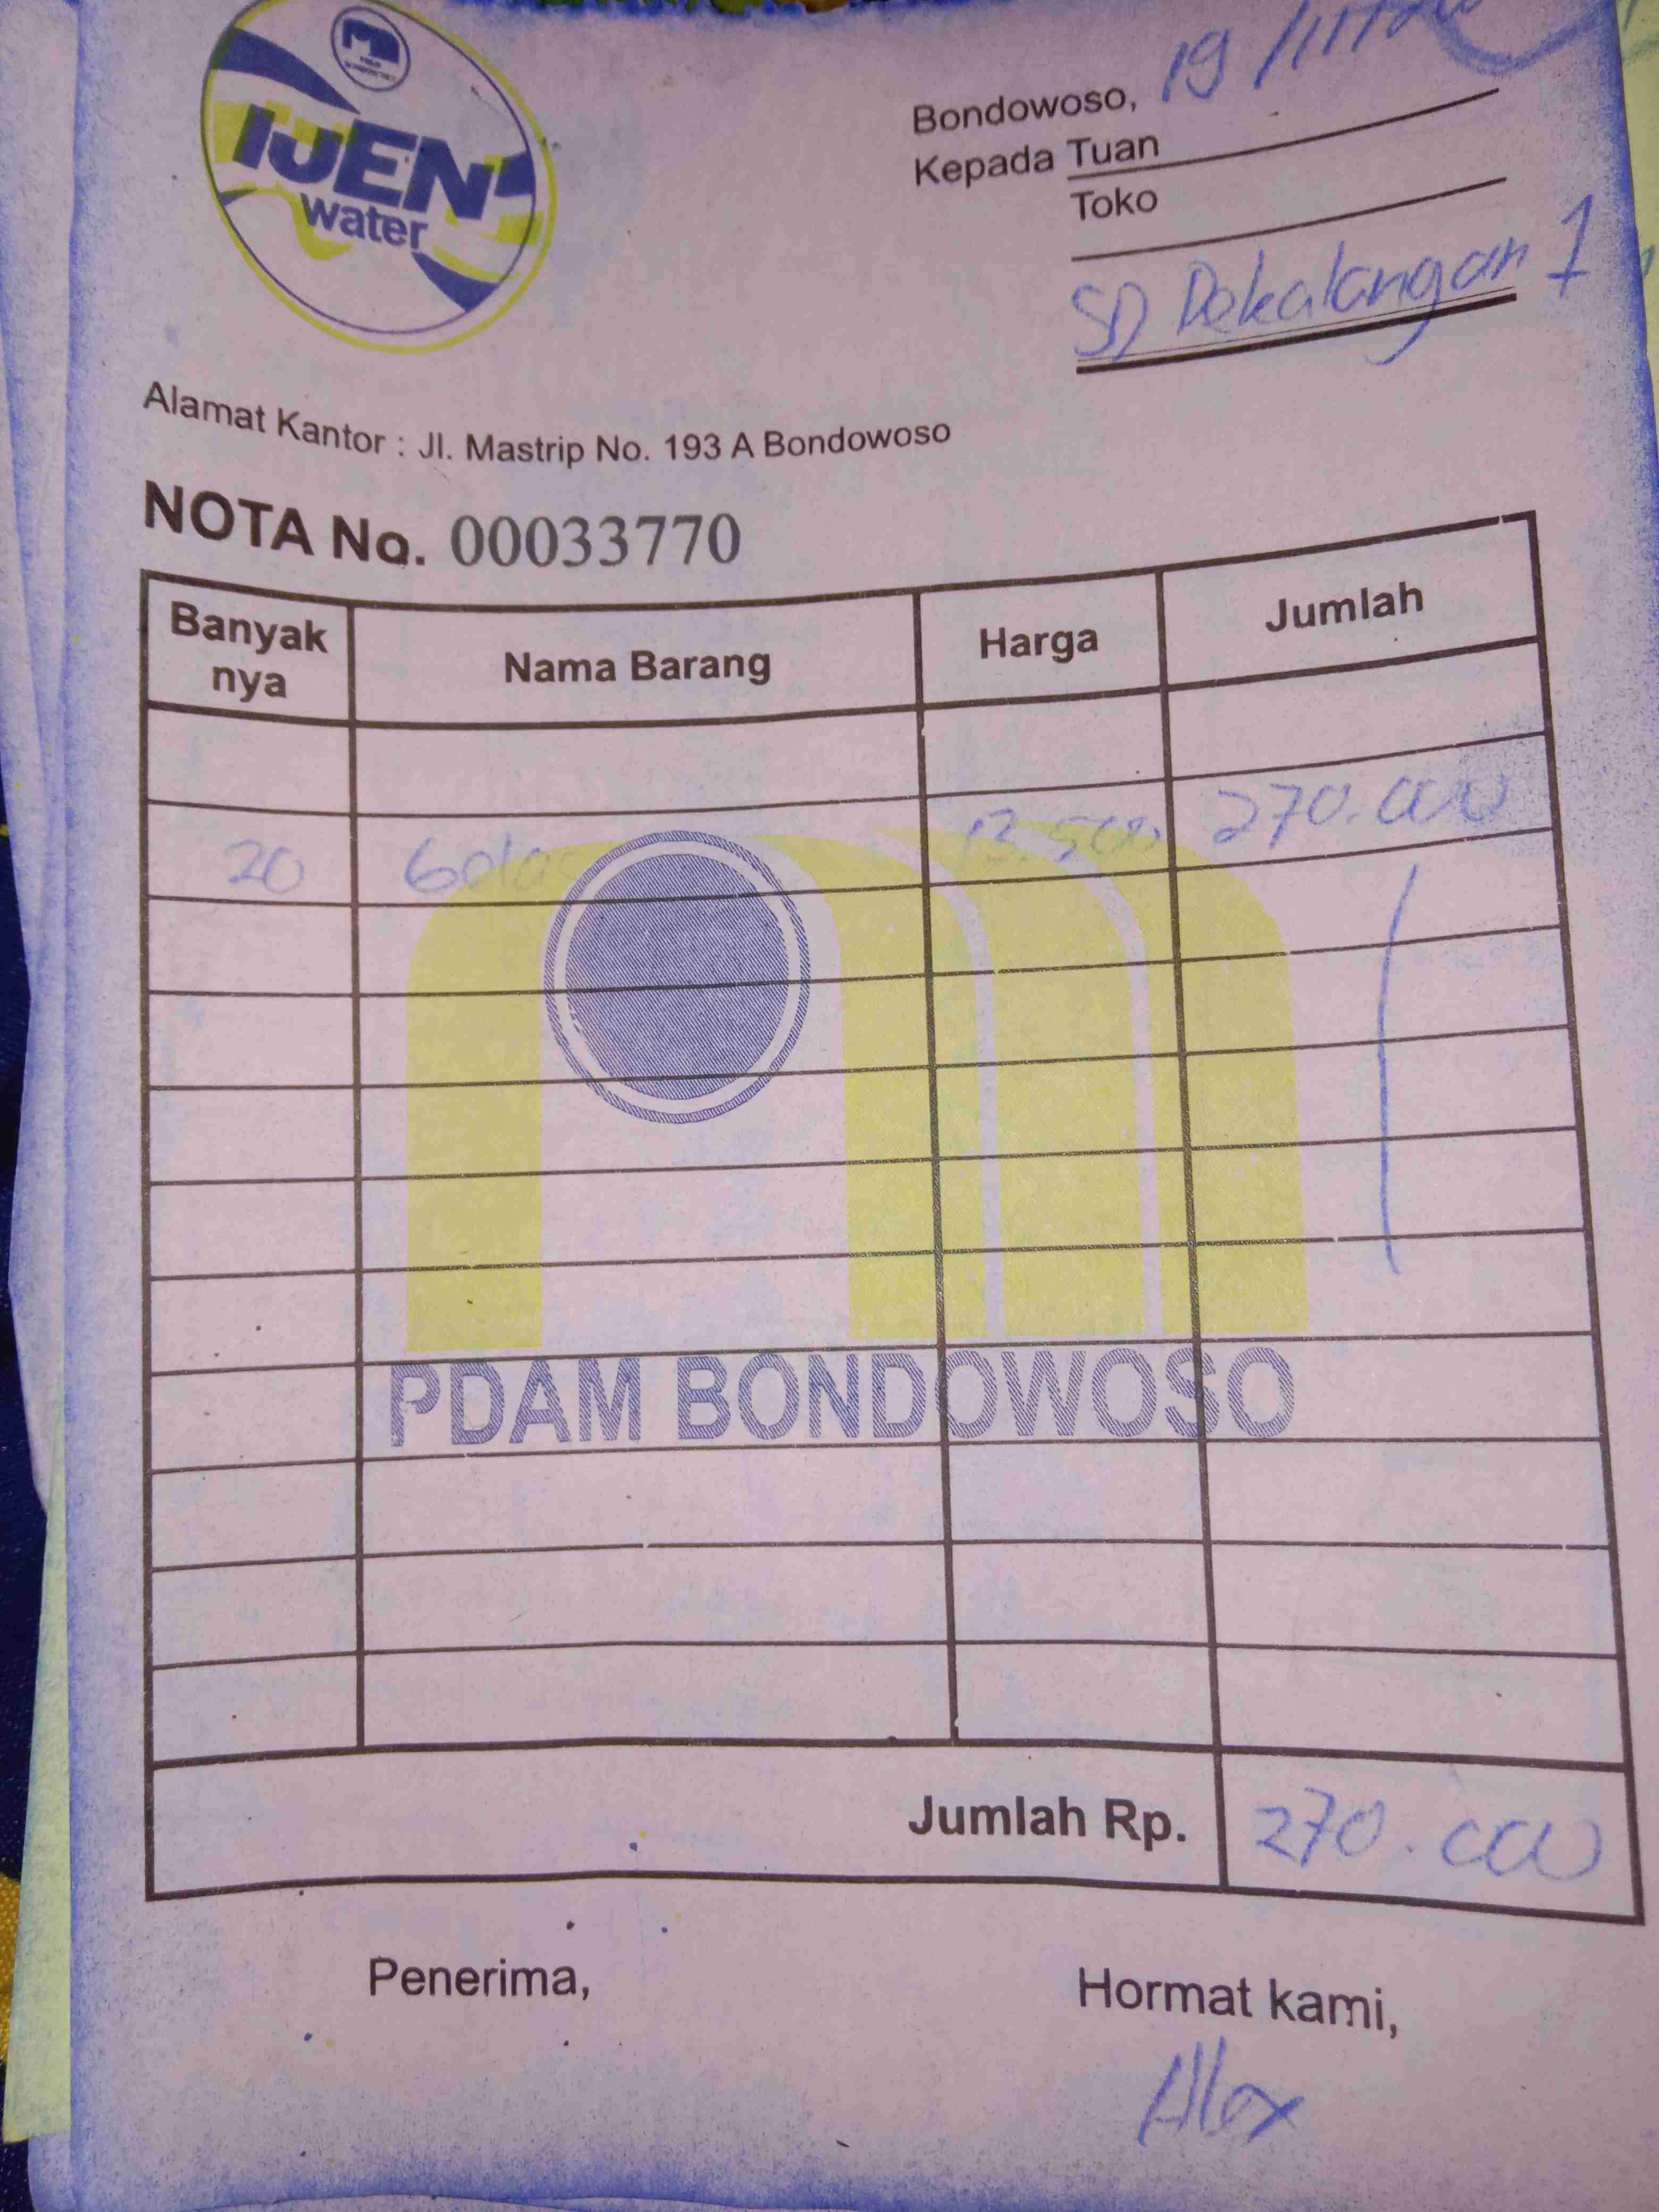 IJEN
water
Bondowoso, 19
Kepada Tuan
Toko
SD Dekalangan 1
Alamat Kantor : Jl. Mastrip No. 193 A Bondowoso
NOTA No. 00033770
Banyak nya Nama Barang Harga Jumlah
20 Gelas 13.500 270.000
PDAM BONDOWOSO
Jumlah Rp. 270.000
Penerima, Hormat kami,
Alex